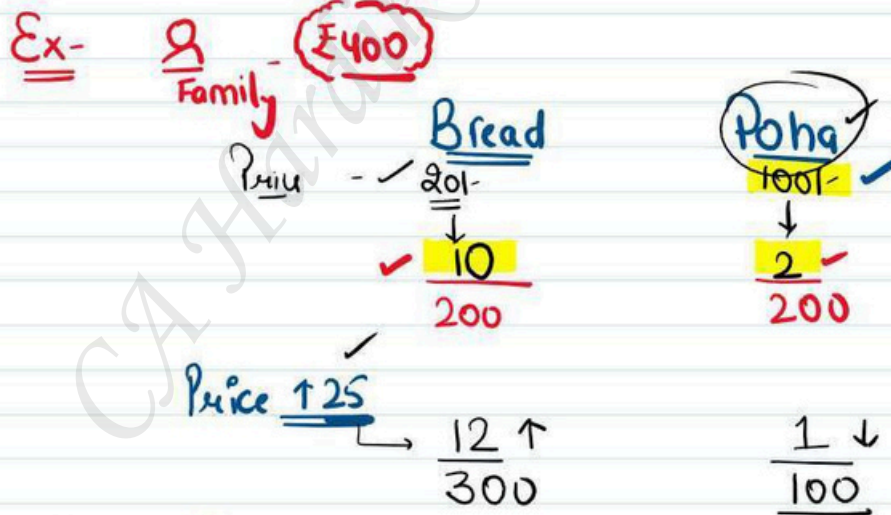 Ex- Family - ₹400
Bread Poha
Price - 20/- 100/-
10 2
200 200
Price ↑ 25
12 ↑ 1 ↓
300 100
CA Hardik